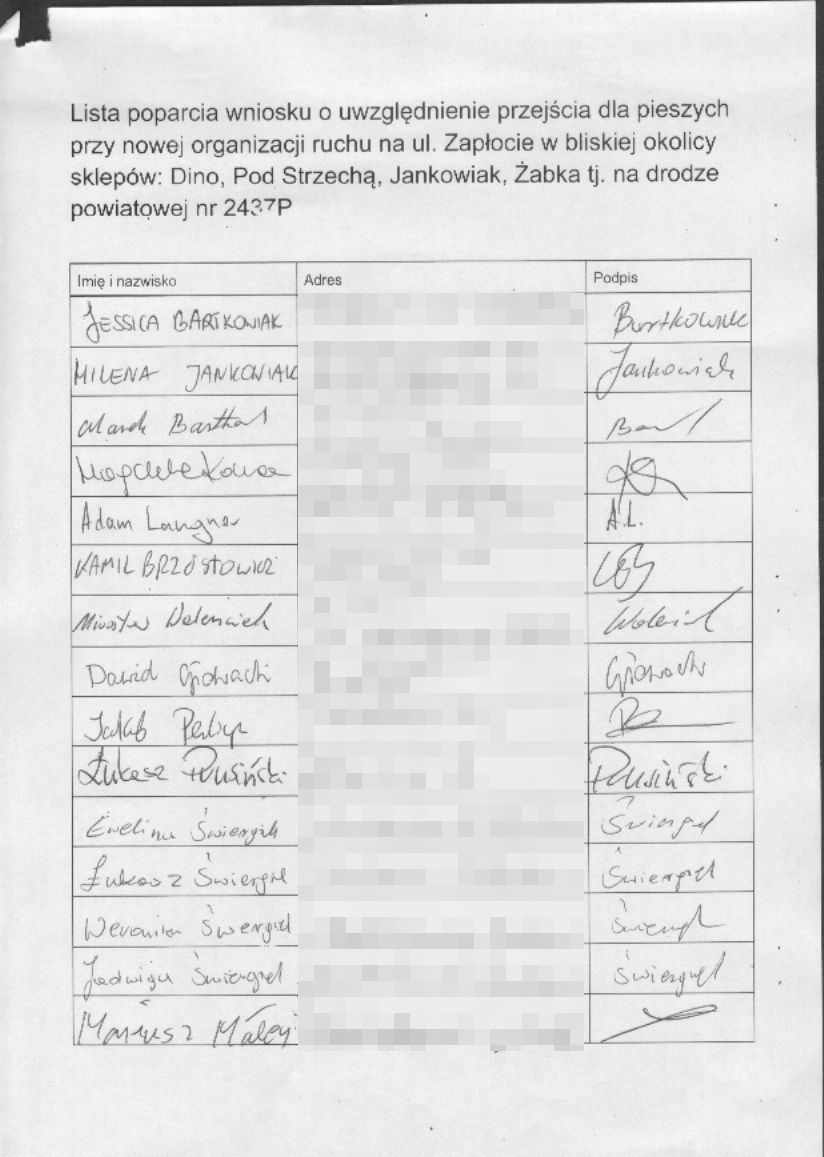 Lista poparcia wniosku o uwzględnienie przejścia dla pieszych
przy nowej organizacji ruchu na ul. Zapłocie w bliskiej okolicy
sklepów: Dino, Pod Strzechą, Jankowiak, Żabka tj. na drodze
powiatowej nr 2437P
Imię i nazwisko Adres Podpis
JESSICA BARTKOWIAK Bartkowiak
MILENA JANKOWIAK Jankowiak
Marek
Adam Langner A.L.
KAMIL
Dawid Głowacki Głowacki
Jakub
Łukasz Rusiński Rusiński
Ewelina Świergiel Świergiel
Łukasz Świergiel Świergiel
Weronika Świergiel Świergiel
Jadwiga Świergiel Świergiel
Mariusz Małej